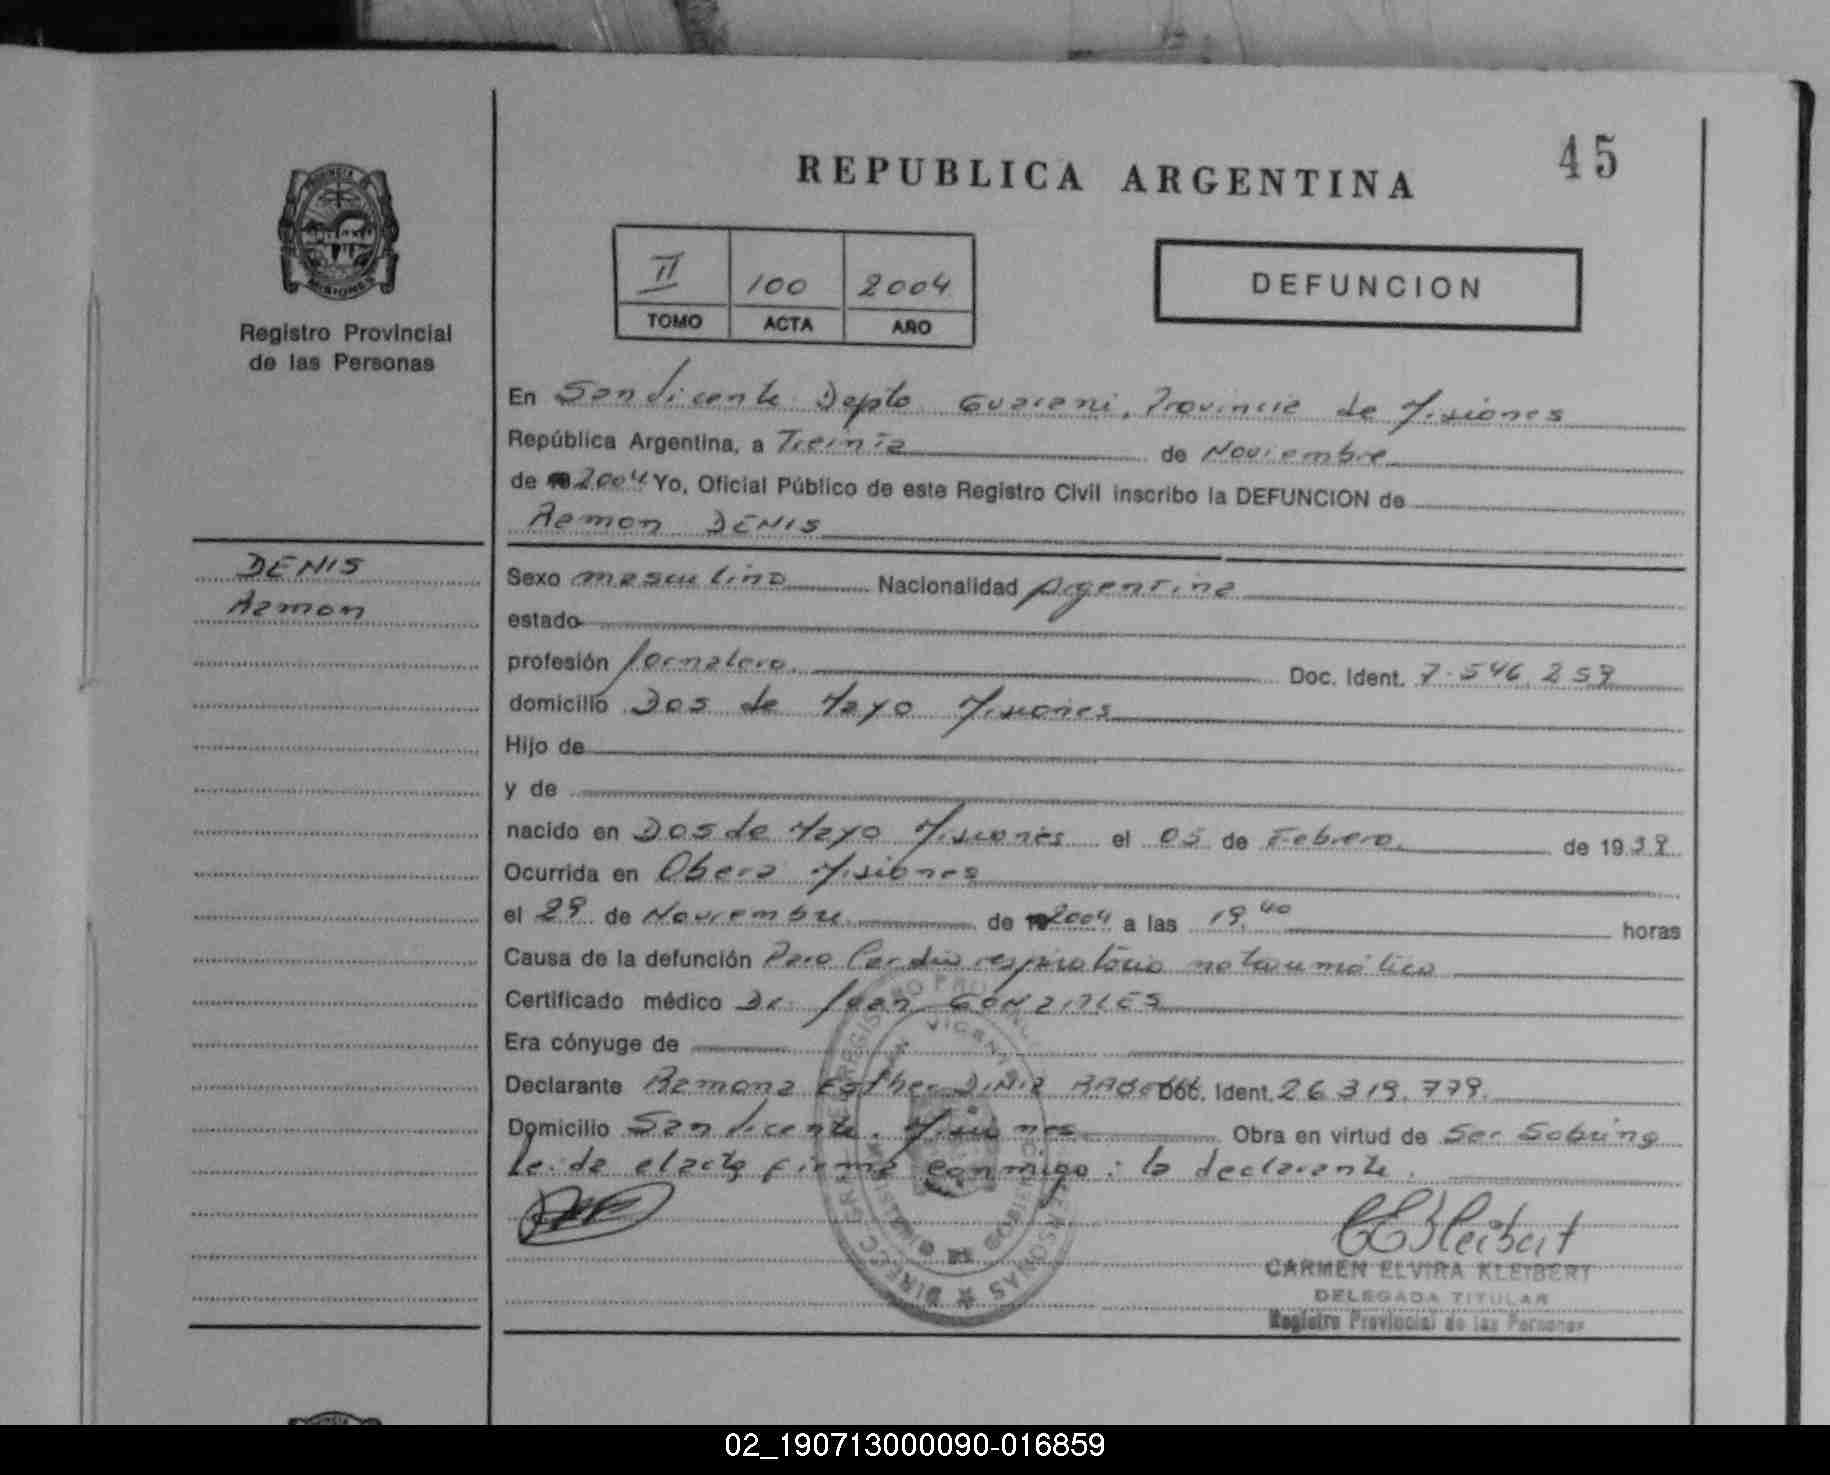 45
REPUBLICA ARGENTINA
PROVINCIA DE
MISIONES
Registro Provincial
de las Personas
II 100 2004
TOMO ACTA AÑO
DEFUNCION
En San Vicente Depto Guarani, Provincia de Misiones
República Argentina, a Treinta de Noviembre
de 2004 Yo, Oficial Público de este Registro Civil inscribo la DEFUNCION de
Ramon DENIS
DENIS
Ramon
Sexo masculino Nacionalidad Argentina
estado
profesión Jornalero. Doc. Ident. 7.546.259
domicilio Dos de Mayo Misiones
Hijo de
y de
nacido en Dos de Mayo Misiones el 05 de Febrero de 19
Ocurrida en Obera Misiones
el 29 de Noviembre de 2004 a las 19,40 horas
Causa de la defunción Paro Cardio respiratorio no traumático
Certificado médico Dr. Juan GONZALES
Era cónyuge de
Declarante Ramona Esther Doc. Ident. 26.319.779.
Domicilio San Vicente, Misiones Obra en virtud de Ser Sobrina
Leida el acta firma conmigo: la declarante.
CARMEN ELVIRA KLEIBERT
DELEGADA TITULAR
Registro Provincial de las Personas
02_190713000090-016859